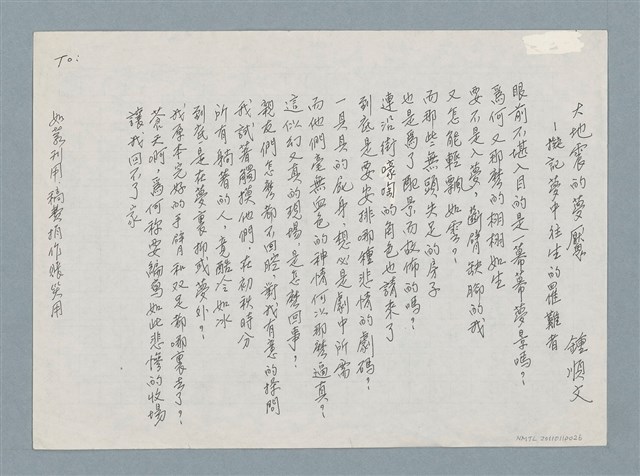 大地震的夢魘 鍾順文
—擬記夢中往生的罹難者
眼前不堪入目的是一幕幕夢景嗎？
爲何又那麼的栩栩如生
要不是入夢，斷臂缺腳的我
又怎能輕飄如雲？
而那些無頭失足的房子
也是爲了配景而故佈的嗎？
連沿街嚎啕的角色也請來了
到底是要安排哪種悲情的劇碼？
一具具的屍身，想必是劇中所需
而他們毫無血色的神情何以那麼逼真？
這似幻又真的現場，是怎麼回事？
親友們怎麼都不回腔，對我有意的探問
我試著觸摸他們，在初秋時分
所有躺著的人，竟酷冷如冰
到底是在夢裏抑或夢外？
我原本完好的手臂和双足都哪裏去了？
蒼天啊，爲何称要編寫如此悲慘的收場
讓我回不了家
如蒙刊用稿費捐作賑災用
To：
NMTL 20110110026